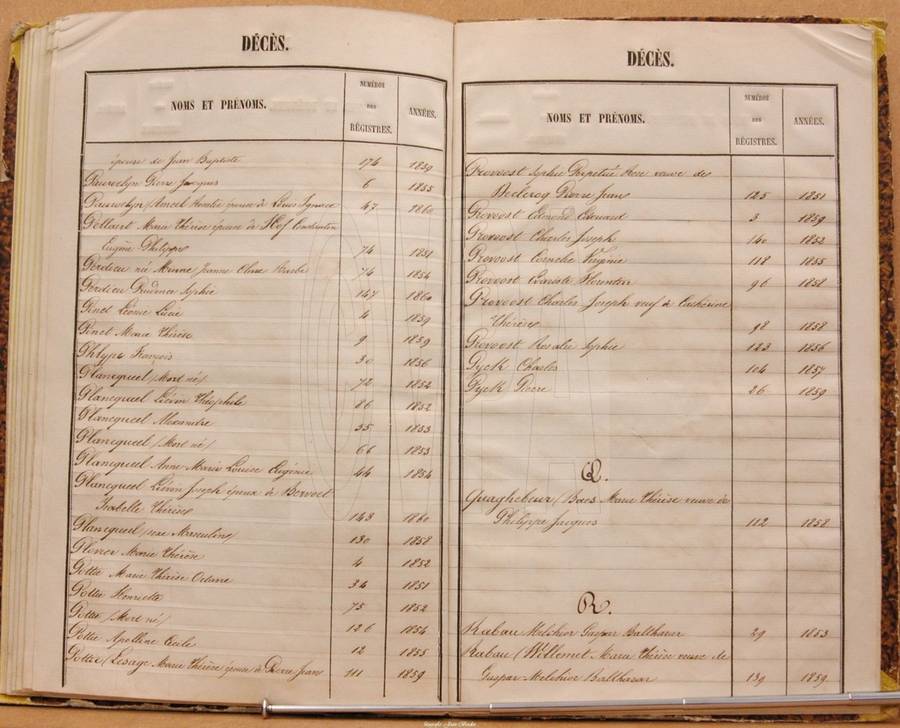 DÉCÈS.
NOMS ET PRÉNOMS.
NUMÉROS
DES
RÉGISTRES.
ANNÉES.
épouse de Jean Baptiste 174 1859
Pauwelyn Pierre Jacques 6 1855
Pauwelyn / Amelie épouse de Louis Ignace 47 1860
Pollaert Marie Thérèse épouse de Constantin
Eugène Philippe 74 1851
Perdieu née Jeanne Barbe 74 1854
Perdieu Prudence Sophie 147 1860
Pinet Léonie Lucie 4 1859
Pinet Marie Thérèse 9 1859
Phlypo François 30 1856
Plancqueel /Mort né/ 72 1852
Plancqueel Liévin Théophile 86 1852
Plancqueel Alexandre 55 1853
Plancqueel /Mort né/ 66 1853
Plancqueel Anne Marie Louise Eugénie 44 1854
Plancqueel Liévin Joseph époux de
Isabelle Thérèse 143 1860
Plancqueel /sexe Masculin/ 130 1858
Plovier Marie Thérèse 4 1852
Pottie Marie Thérèse Octavie 34 1851
Pottie Henriette 75 1852
Pottie /Mort né/ 126 1854
Pottie Apolline Cécile 12 1855
Pottie / Lesage Marie Thérèse épouse de Pierre Jean 111 1859
DÉCÈS.
NOMS ET PRÉNOMS.
NUMÉROS
DES
RÉGISTRES.
ANNÉES.
Provoost Sophie Perpétue Rose veuve de
Declercq Pierre Jean 125 1851
Provoost Edmond Edouard 3 1859
Provoost Charles Joseph 140 1852
Provoost Virginie 118 1855
Provoost Evariste Florentin 96 1858
Provoost Charles Joseph veuf de Catherine
Thérèse 98 1858
Provoost Rosalie Sophie 123 1856
Pyck Charles 104 1857
Pyck Pierre 26 1859
Q.
Quaghebeur / Baes Marie Thérèse veuve de
Philippe Jacques 112 1858
R.
Rabau Melchior Gaspar Balthasar 29 1853
Rabau / Willemet Marie Thérèse veuve de
Gaspar Melchior Balthasar 139 1859